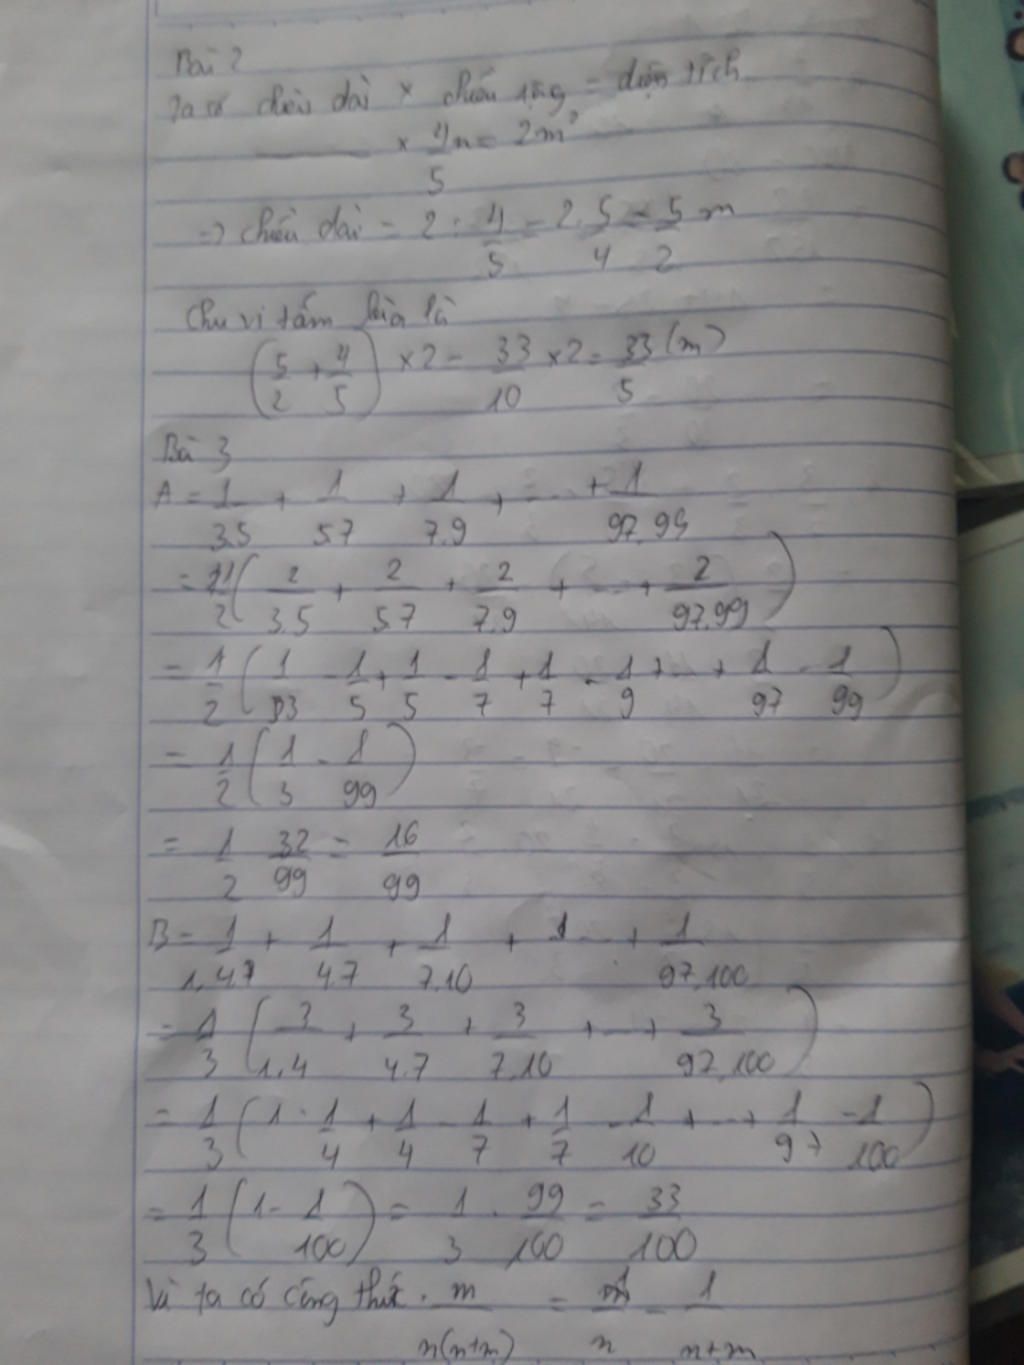 Bài 2
Ta có chiều dài × chiều rộng = diện tích
____ × 4/5 m = 2m²
=> chiều dài = 2 : 4/5 = 2.5/4 = 5/2 m
Chu vi tấm là
(5/2 + 4/5) × 2 = 33/10 × 2 = 33/5 (m)
Bài 3
A = 1/3.5 + 1/5.7 + 1/7.9 + ... + 1/97.99
= 1/2 (2/3.5 + 2/5.7 + 2/7.9 + ... + 2/97.99)
= 1/2 (1/3 - 1/5 + 1/5 - 1/7 + 1/7 - 1/9 + ... + 1/97 - 1/99)
= 1/2 (1/3 - 1/99)
= 1/2 32/99 = 16/99
B = 1/1.4 + 1/4.7 + 1/7.10 + ... + 1/97.100
= 1/3 (3/1.4 + 3/4.7 + 3/7.10 + ... + 3/97.100)
= 1/3 (1 - 1/4 + 1/4 - 1/7 + 1/7 - 1/10 + ... + 1/97 - 1/100)
= 1/3 (1 - 1/100) = 1/3 . 99/100 = 33/100
Vì ta có công thức . m/n(n+m) = 1/n - 1/n+m